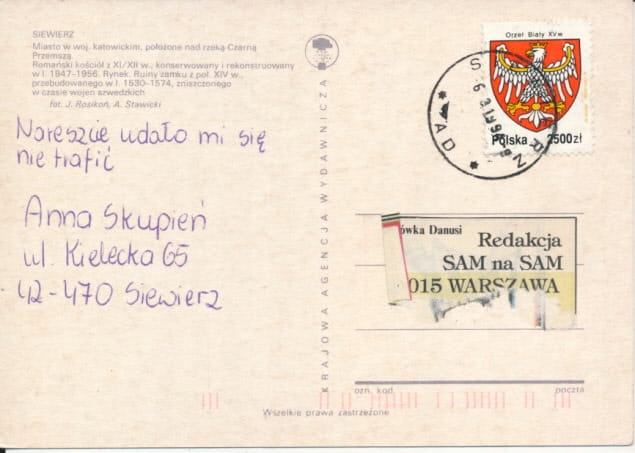 SIEWIERZ
Miasto w woj. katowickim, położone nad rzeką Czarną
Przemszą
Romański kościół z XI/XII w., konserwowany i rekonstruowany
w l. 1947-1956. Rynek. Ruiny zamku z poł. XIV w.,
przebudowanego w l. 1530-1574, zniszczonego
w czasie wojen szwedzkich
fot. J. Rosikoń, A. Stawicki
Nareszcie udało mi się
nie trafić
Anna Skupień
ul. Kielecka 65
42-470 Siewierz
KRAJOWA AGENCJA WYDAWNICZA
Orzeł Biały XV w
Polska 2500zł
ówka Danusi
Redakcja
SAM na SAM
015 WARSZAWA
ozn. kod.
poczta
Wszelkie prawa zastrzeżone